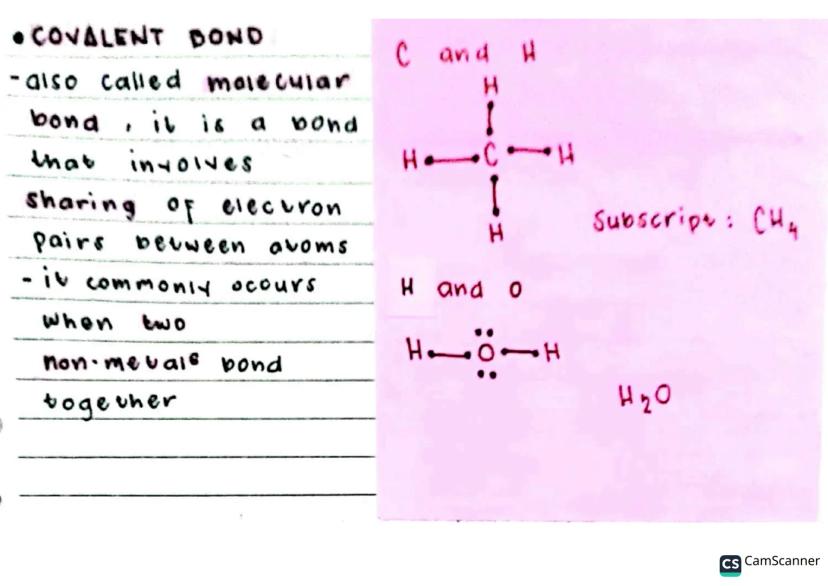 • COVALENT BOND
- also called molecular
bond, it is a bond
that involves
sharing of electron
pairs between atoms
- it commonly ocours
when two
non-metals bond
together
C and H
H
H C H
H
Subscript: CH₄
H and O
H O H
H₂O
CS CamScanner